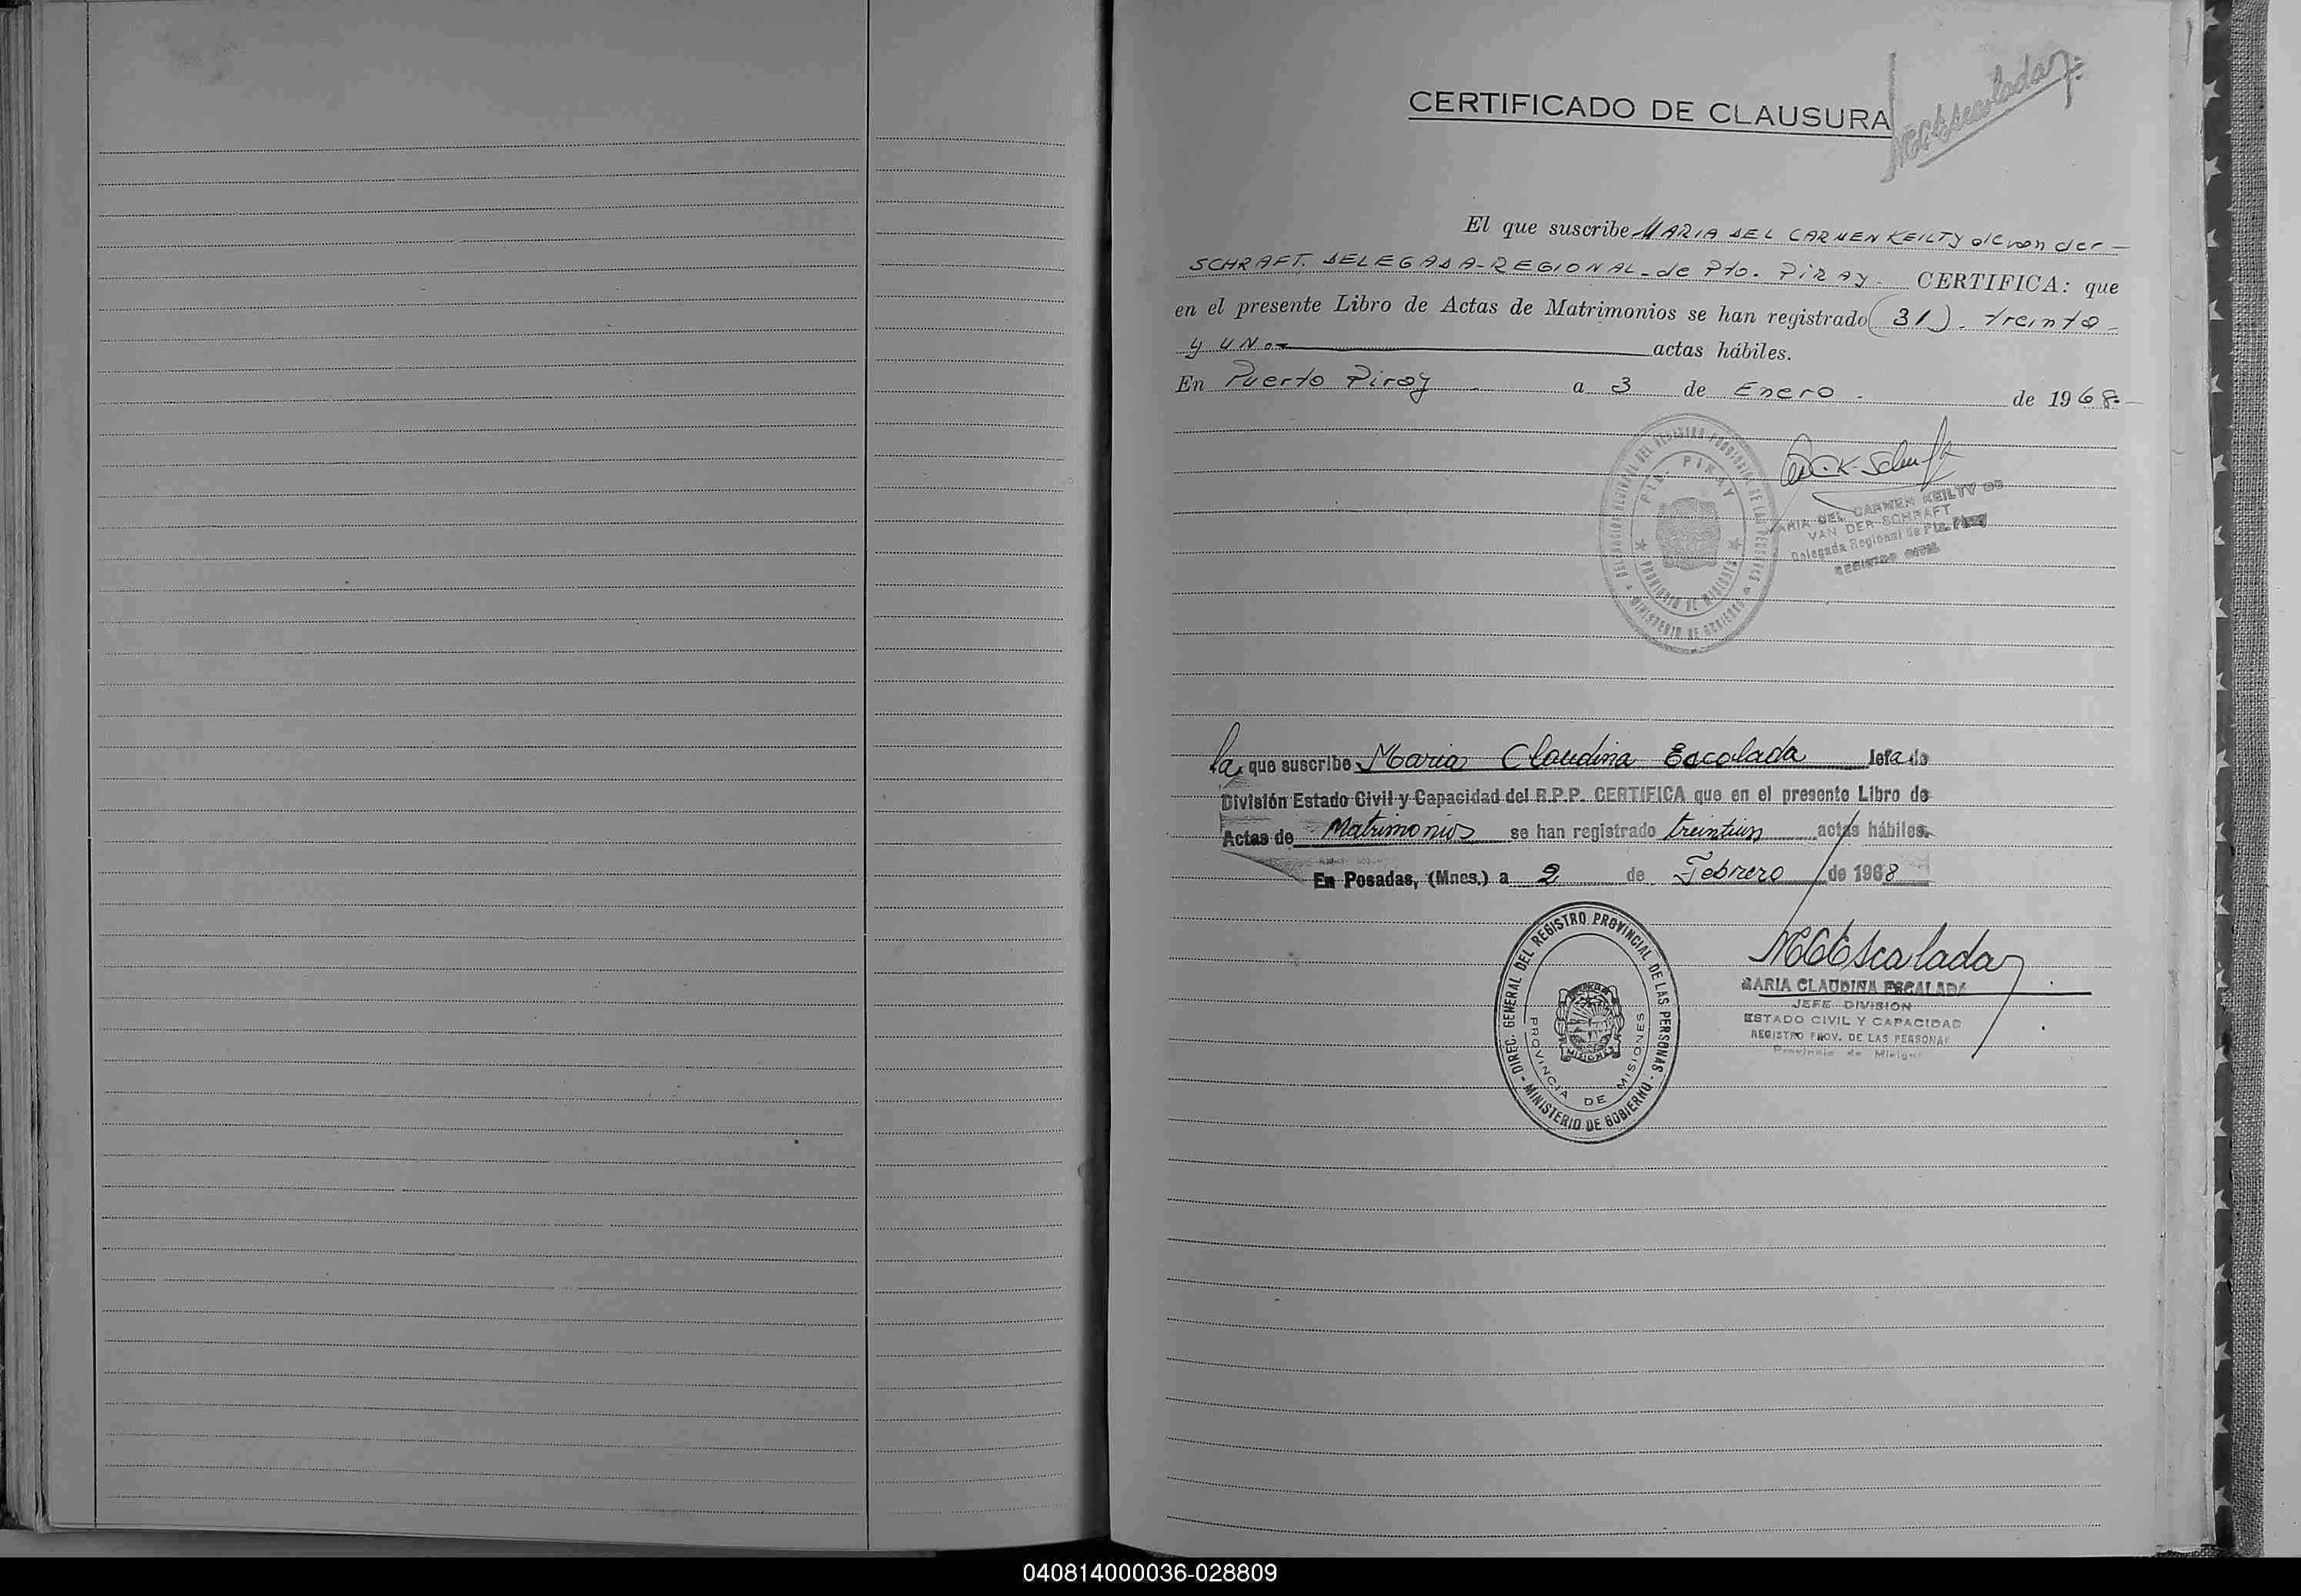 CERTIFICADO DE CLAUSURA
MCEscalada
El que suscribe MARIA DEL CARMEN KEILTY de von der -
SCHRAFT, DELEGADA-REGIONAL- de Pto. PiRAY. CERTIFICA: que
en el presente Libro de Actas de Matrimonios se han registrado (31) - treinta -
y uno actas hábiles.
En Puerto Piray a 3 de Enero . de 1968.-
PTO. PIRAY
PROVINCIA DE MISIONES
MINISTERIO DE GOBIERNO
M.C.K. Schraft
MARIA DEL CARMEN KEILTY DE
VAN DER SCHRAFT
Delegada Regional de Pto. Piray
REGISTRO CIVIL
La que suscribe Maria Claudina Escalada Jefa de
División Estado Civil y Capacidad del R.P.P. CERTIFICA que en el presente Libro de
Actas de Matrimonios se han registrado treintiun actas hábiles.
En Posadas, (Mnes.) a 2 de Febrero de 1968
DIREC. GENERAL DEL REGISTRO PROVINCIAL DE LAS PERSONAS - MINISTERIO DE GOBIERNO -
PROVINCIA DE MISIONES
MISIONES
MCEscalada
MARIA CLAUDINA ESCALADA
JEFE DIVISION
ESTADO CIVIL Y CAPACIDAD
REGISTRO PROV. DE LAS PERSONAS
Provincia de Misiones
040814000036-028809